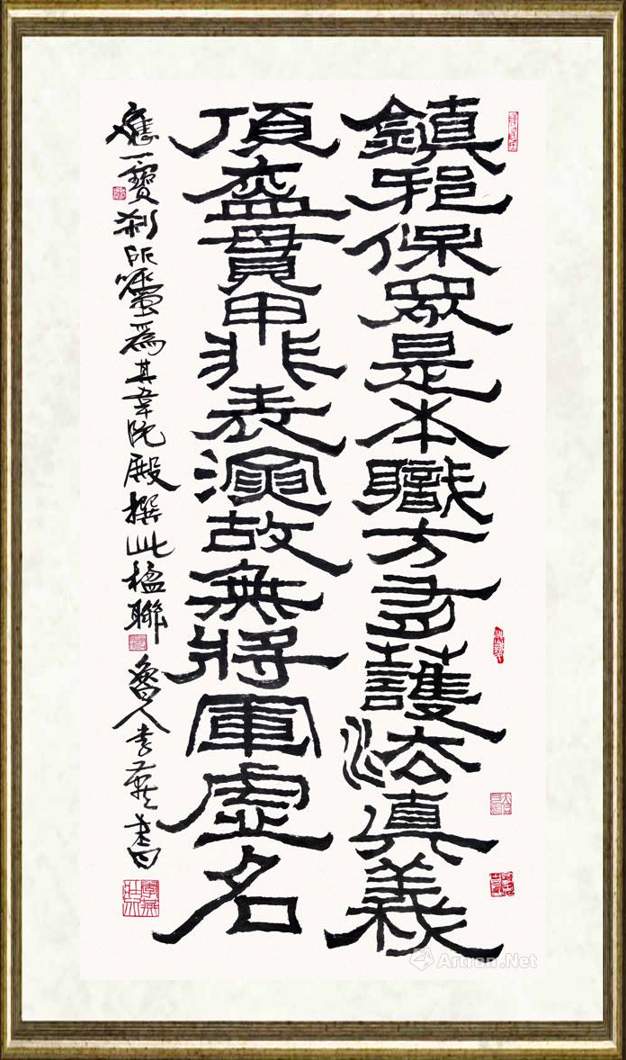 鎮邪保眾是本職方多護法真義
頂盔貫甲非表演故無將軍虛名
應一寶剎所囑為其韋陀殿撰此楹聯
魯人李燕書
Artron.Net